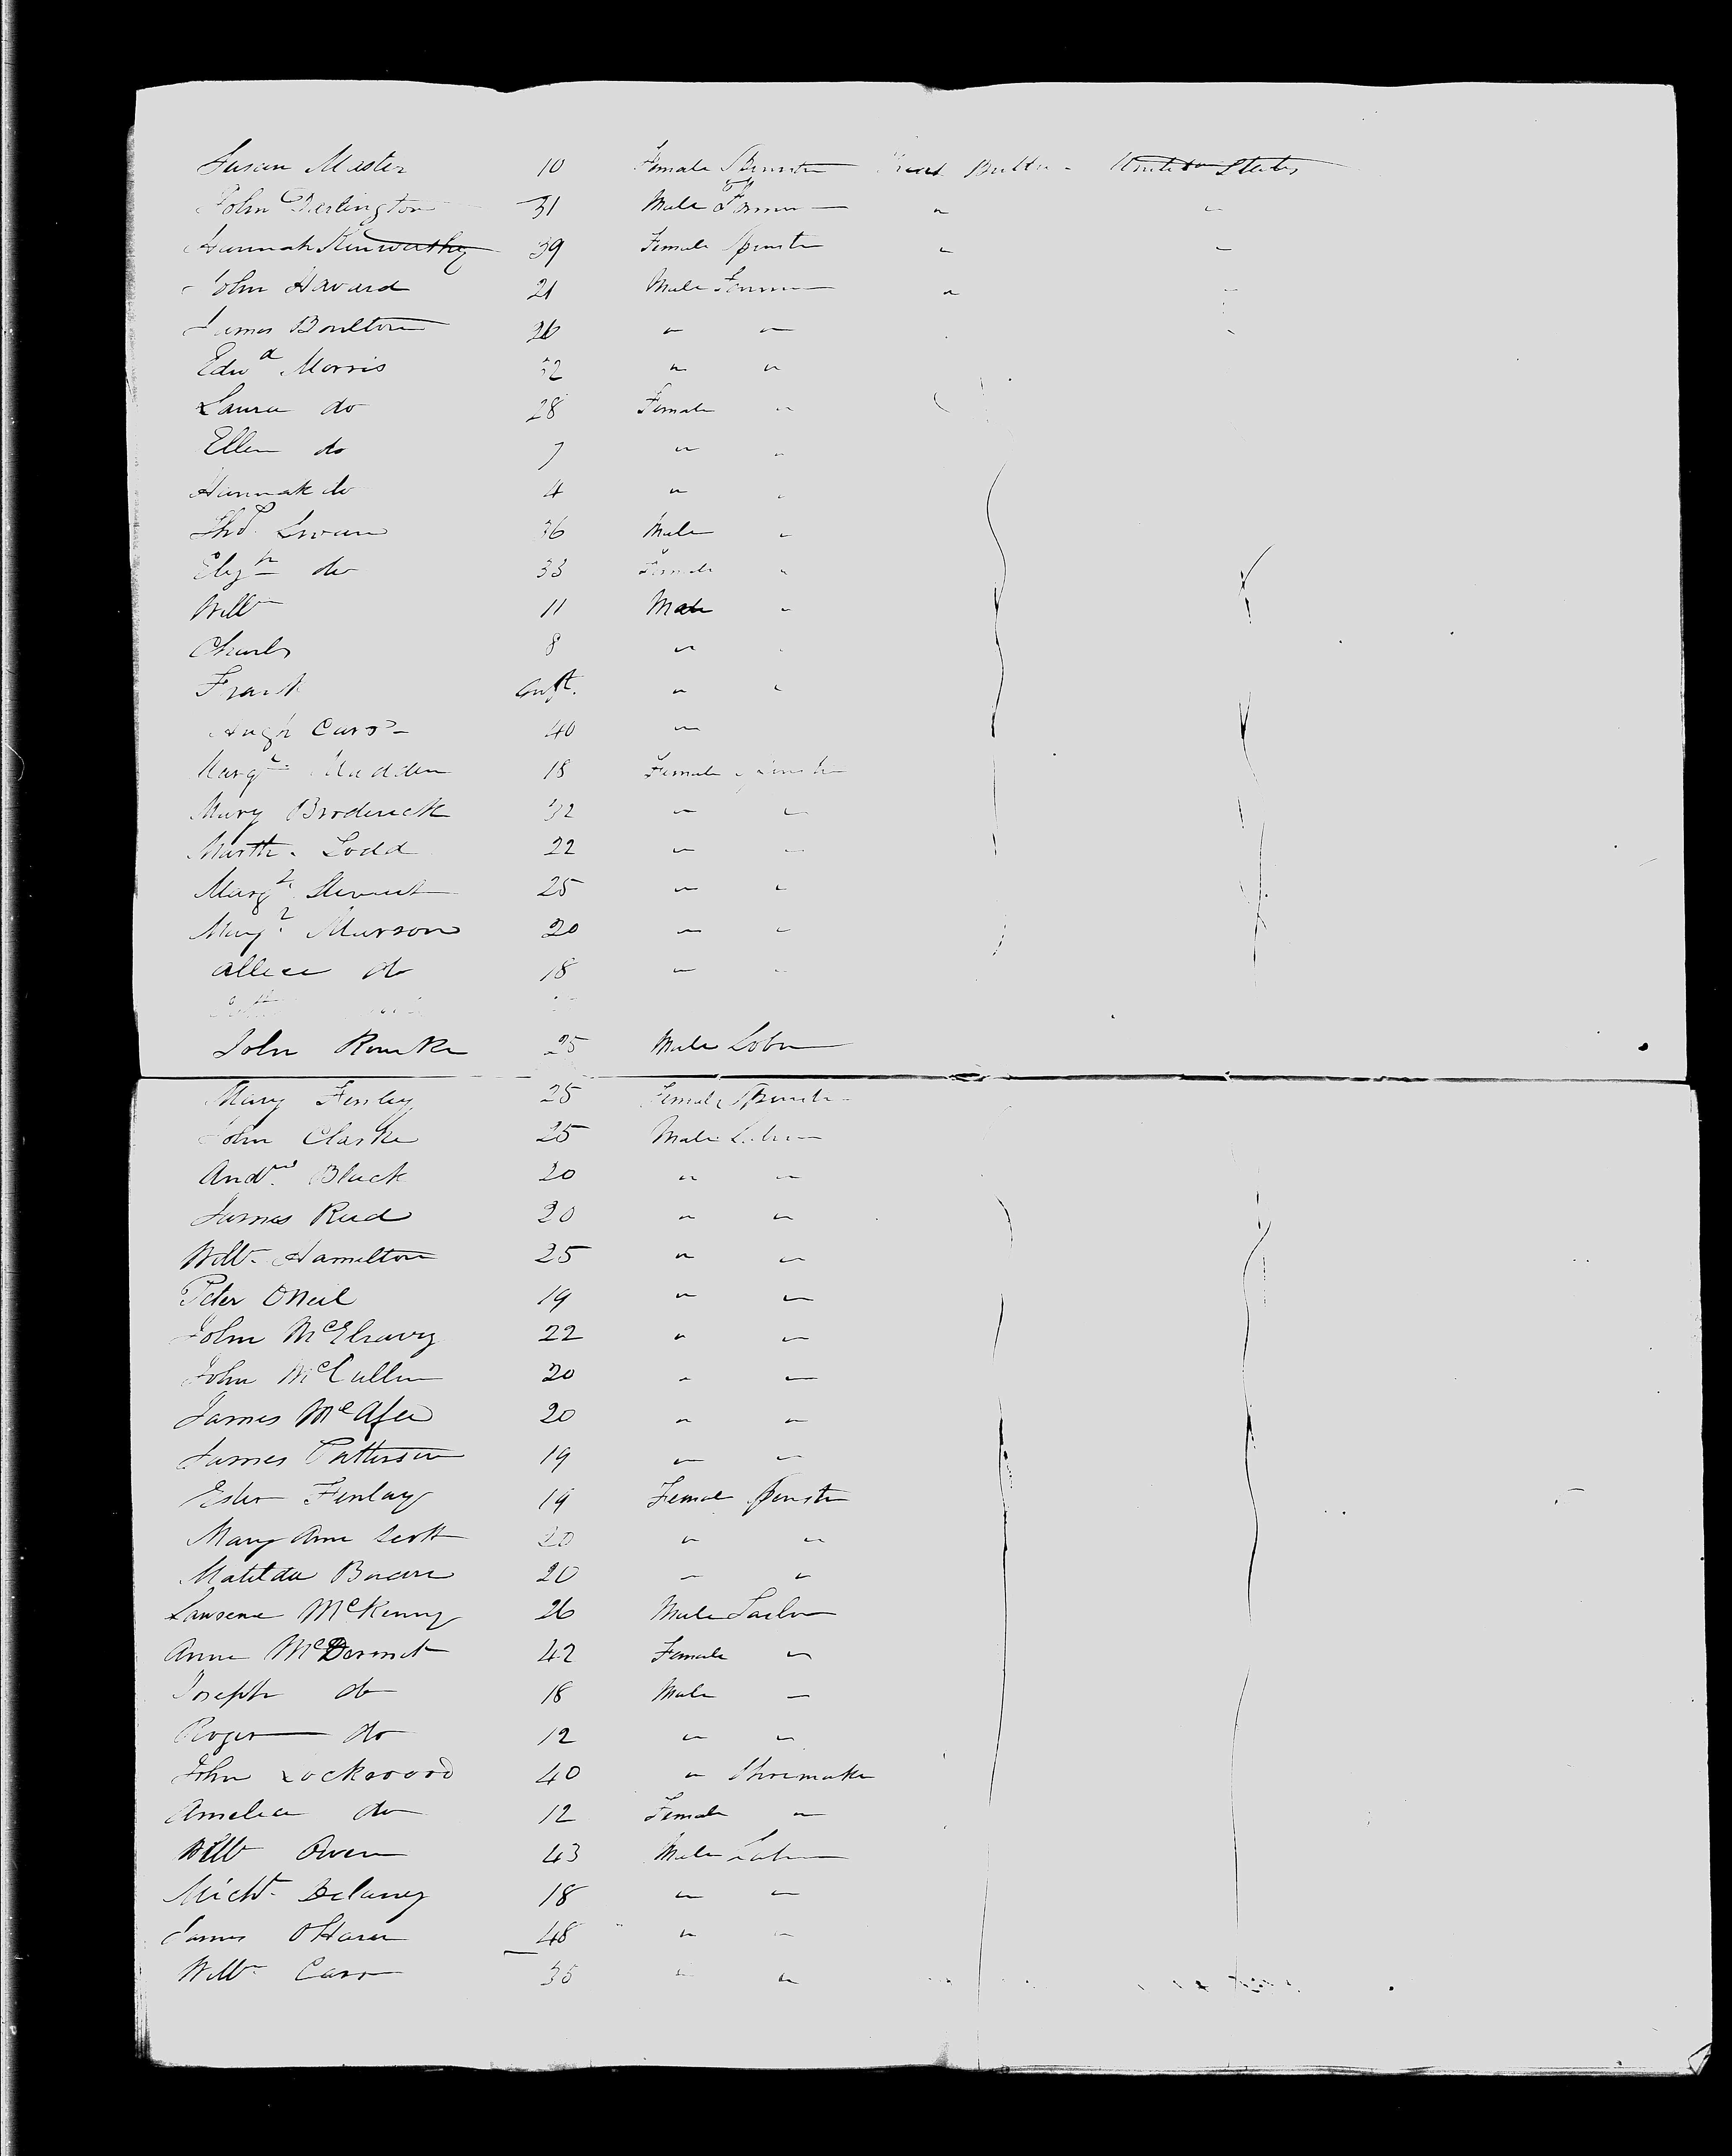 Susan Master 10 Female Spinster Great Britain United States
John Derlington 31 Male Farmer " "
Hannah Kenworthy 39 Female Spinster " "
John Havard 21 Male Farmer " "
James Boulton 26 " "
Edwd Morris 32 " "
Laura do 28 Female "
Ellen do 7 " "
Hannah do 4 " "
Thos Swan 36 Male "
Elizth do 33 Female "
Willm 11 Male "
Charles 8 " "
Frank Inft. " "
Hugh Carr 40 "
Margt Madden 18 Female Spinster
Mary Broderick 32 " "
Marth. Todd 22 " "
Margt Stewart 25 " "
Margt Marson 20 " "
Allice do 18 " "
John Rourke 25 Male Labr
Mary Fenley 25 Female Spinster
John Clarke 25 Male Labr
Andrw Black 20 " "
James Reed 20 " "
Willm Hamilton 25 " "
Peter ONeil 19 " "
John McElravy 22 " "
John McCullen 20 " "
James McAfee 20 " "
James Patterson 19 " "
Ester Fenlay 19 Female Spinster
Mary Ann Scott 20 " "
Matilda 20 " "
Lawrence McKenny 26 Male Tailor
Anne McDermot 42 Female "
Joseph do 18 Male "
Roger do 12 " "
John Lockwood 40 " Shoemaker
Amelia do 12 Female "
Willm Owen 43 Male Labr
Michl. Delaney 18 " "
James OHara 48 " "
Willm Carr 35 " "